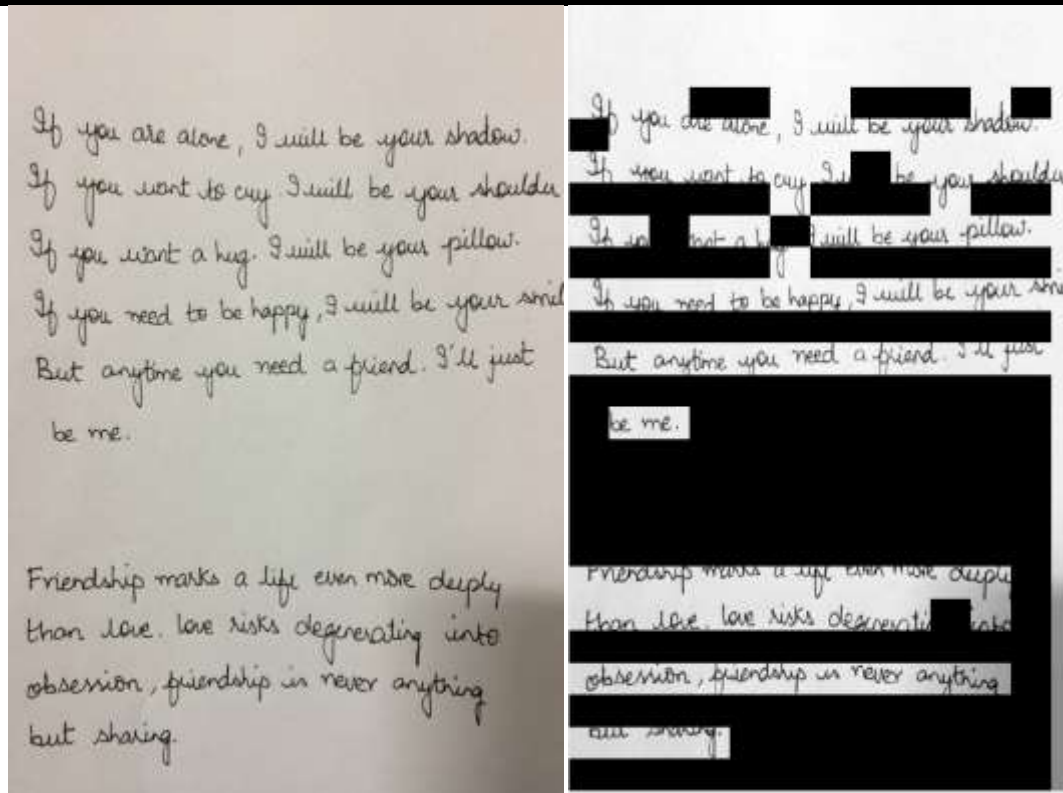 If you are alone, I will be your shadow.
If you want to cry I will be your shoulder
If you want a hug. I will be your pillow.
If you need to be happy, I will be your smil
But anytime you need a friend. I'll just
be me.
Friendship marks a life even more deeply
than love. love risks degenerating into
obsession, friendship is never anything
but sharing.
If you are alone, I will be your shadow.
If you want to cry be your shoulder
I will be your pillow.
If you need to be happy, I will be your smi
But anytime you need a friend. I'll just
be me.
Friendship marks a life even more deeply
than love. love risks
obsession, friendship is never anything
but sharing.